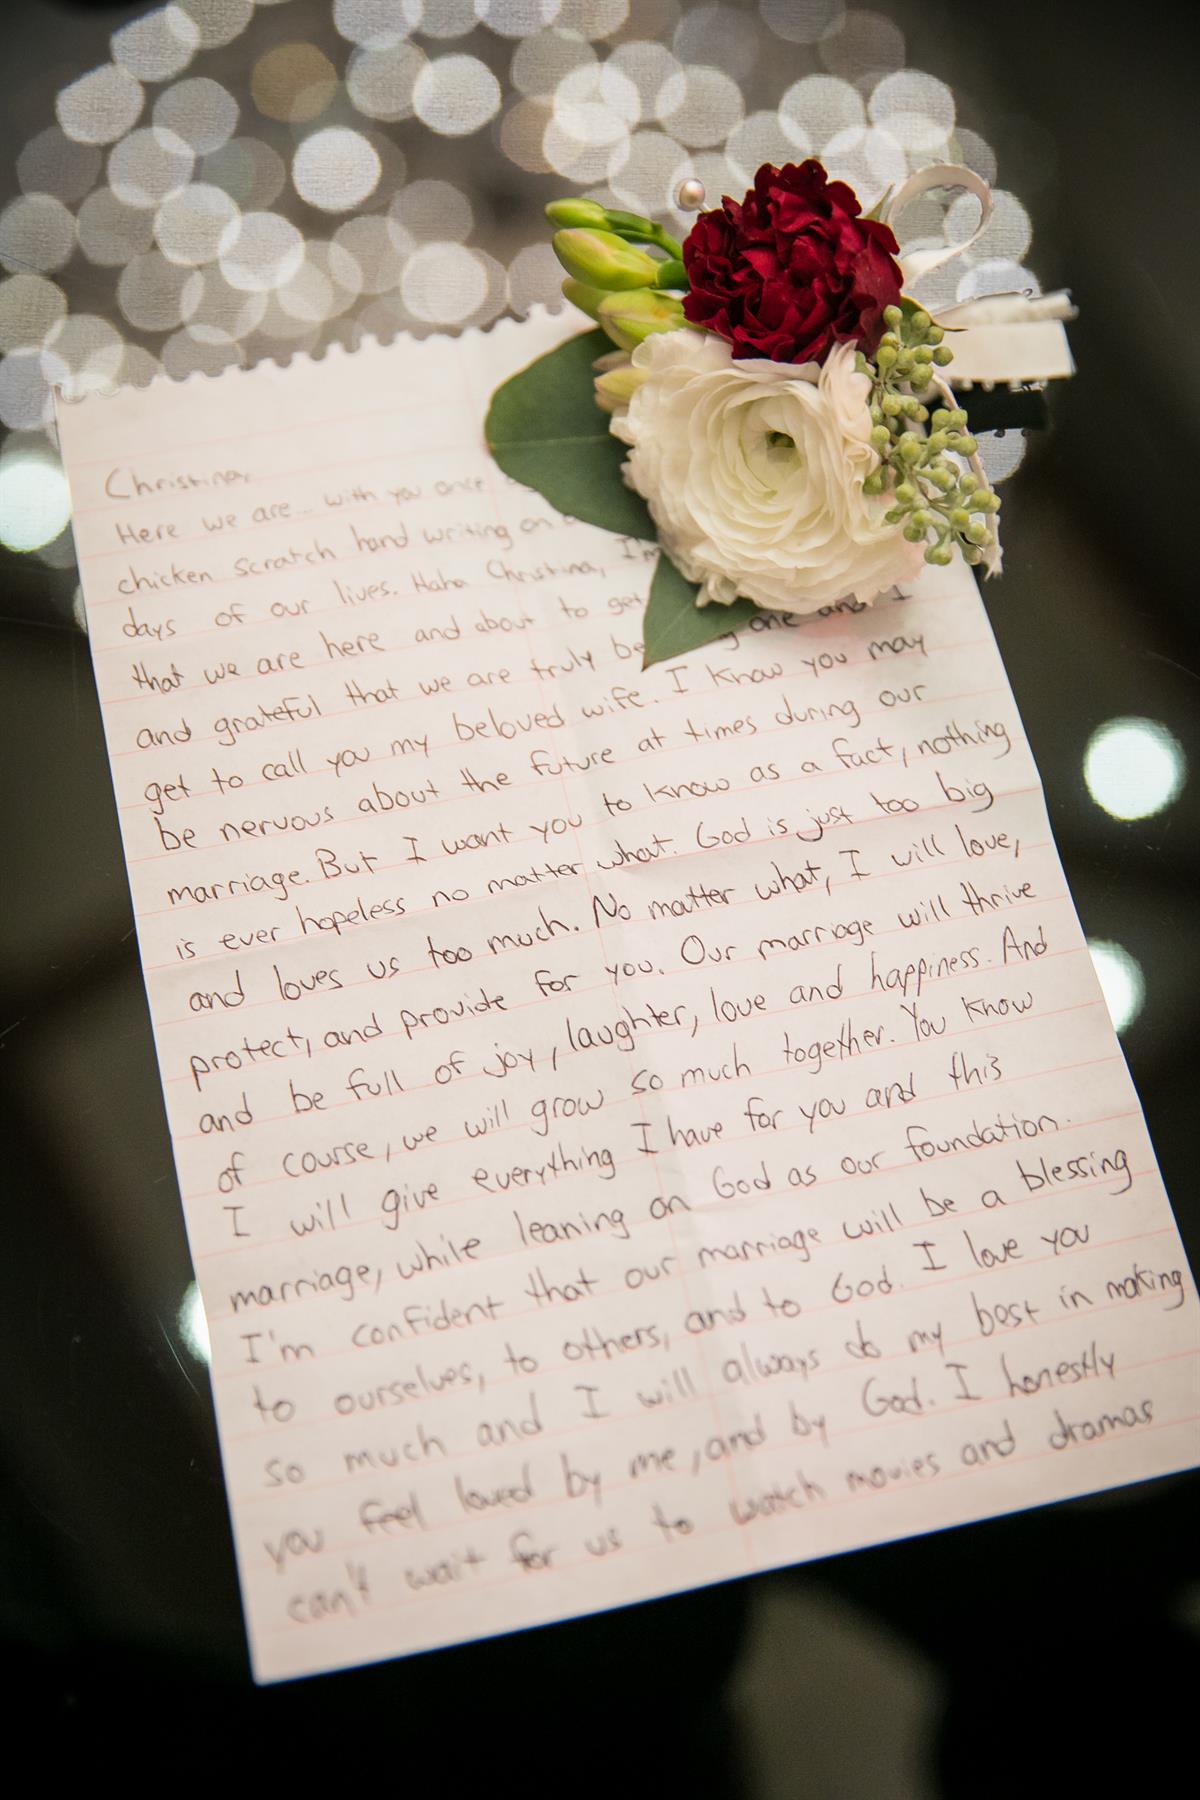 Christina,
Here we are... with you once
chicken scratch hand writing on
days of our lives. Haha Christina, I'm
that we are here and about to get
and grateful that we are truly one and I
get to call you my beloved wife. I know you may
be nervous about the future at times during our
marriage. But I want you to know as a fact, nothing
is ever hopeless no matter what. God is just too big
and loves us too much. No matter what, I will love,
protect, and provide for you. Our marriage will thrive
and be full of joy, laughter, love and happiness. And
of course, we will grow so much together. You know
I will give everything I have for you and this
marriage, while leaning on God as our foundation.
I'm confident that our marriage will be a blessing
to ourselves, to others, and to God. I love you
so much and I will always do my best in making
you feel loved by me, and by God. I honestly
can't wait for us to watch movies and dramas